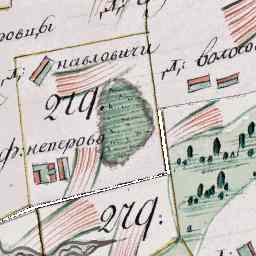 ровцы
д: павловичи
д: волосо
219.
ф: неперово
219.